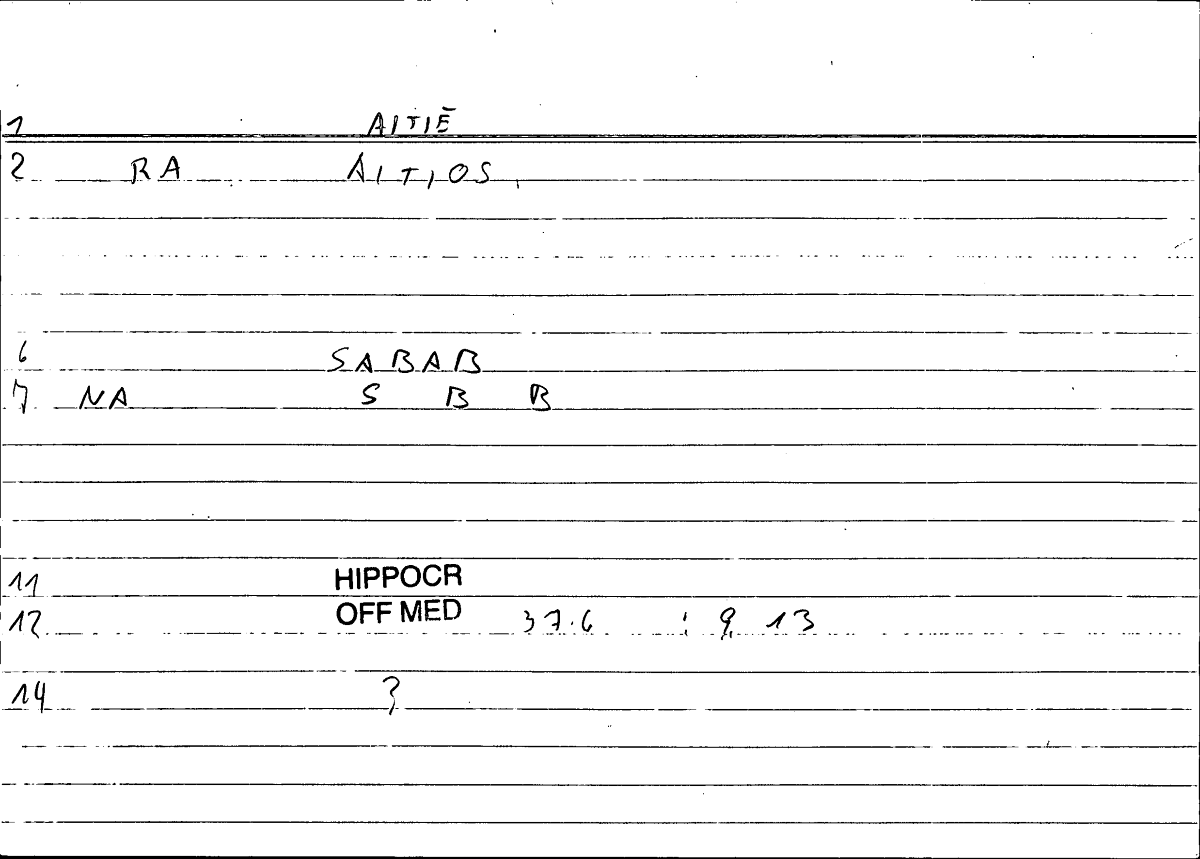 1 AITIĒ
2 RA AITIOS
6 SABAB
7 NA S B B
11 HIPPOCR
12 OFF MED 37.6 : 9, 13
14 ?